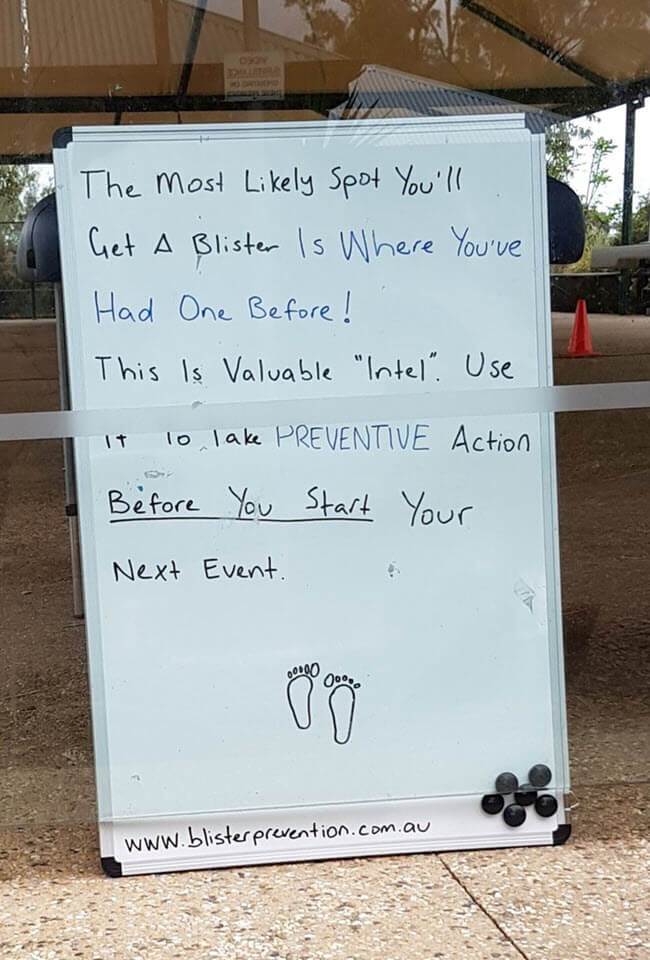 The Most Likely Spot You'll
Get A Blister Is Where You've
Had One Before!
This Is Valuable "Intel". Use
It To Take PREVENTIVE Action
Before You Start Your
Next Event.
www.blisterprevention.com.au